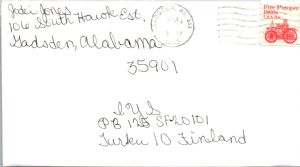 Jodi Jones
106 South Hawk Est.
Gadsden, Alabama
35901
Fire Pumper
1860s
USA 20c
IYS
PB 125 SF-20101
Turku 10 Finland